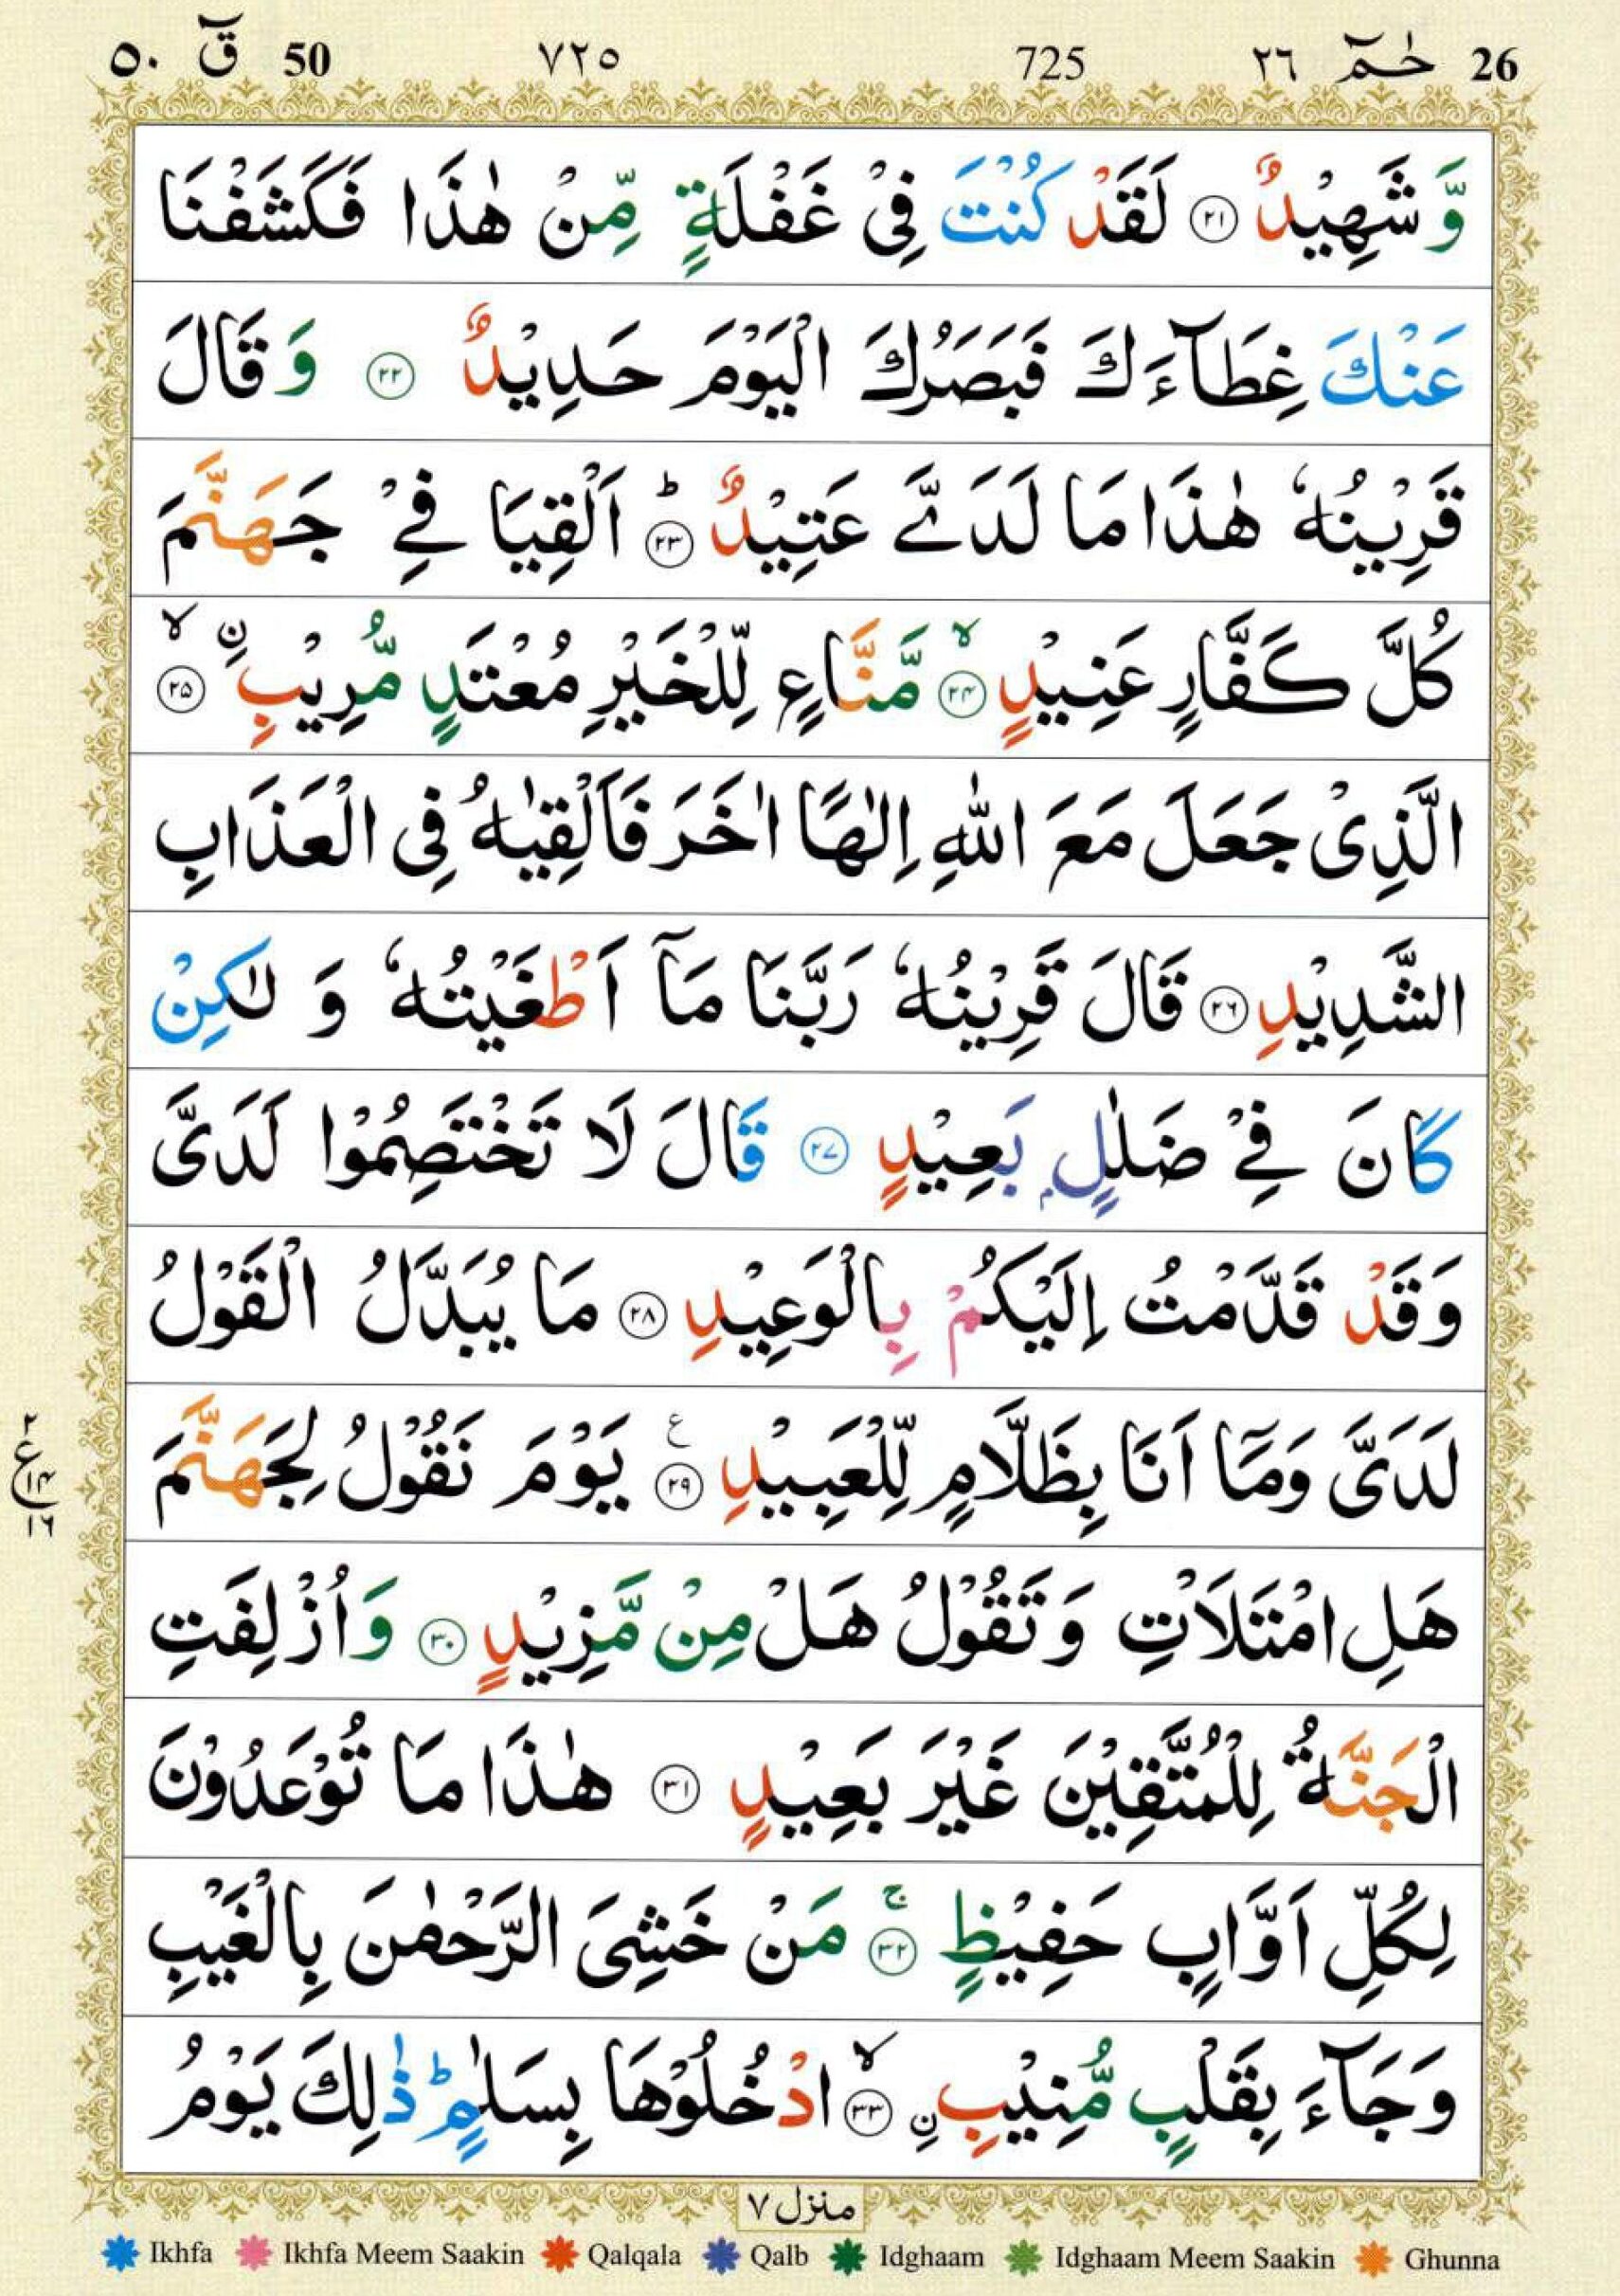 26 حٰمٓ ٢٦ 725 ٧٢٥ 50 قٓ ٥٠
وَّ شَهِيْدٌ ٢١ لَقَدْ كُنْتَ فِىْ غَفْلَةٍ مِّنْ هٰذَا فَكَشَفْنَا
عَنْكَ غِطَآءَكَ فَبَصَرُكَ الْيَوْمَ حَدِيْدٌ ٢٢ وَ قَالَ
قَرِيْنُهٗ هٰذَا مَا لَدَىَّ عَتِيْدٌ ؕ ٢٣ اَلْقِيَا فِىْ جَهَنَّمَ
كُلَّ كَفَّارٍ عَنِيْدٍ ۙ ٢٤ مَّنَّاعٍ لِّلْخَيْرِ مُعْتَدٍ مُّرِيْبِ ۨ ۙ ٢٥
الَّذِىْ جَعَلَ مَعَ اللّٰهِ اِلٰهًا اٰخَرَ فَاَلْقِيٰهُ فِى الْعَذَابِ
الشَّدِيْدِ ٢٦ قَالَ قَرِيْنُهٗ رَبَّنَا مَآ اَطْغَيْتُهٗ وَ لٰكِنْ
كَانَ فِىْ ضَلٰلٍۭ بَعِيْدٍ ٢٧ قَالَ لَا تَخْتَصِمُوْا لَدَىَّ
وَقَدْ قَدَّمْتُ اِلَيْكُمْ بِالْوَعِيْدِ ٢٨ مَا يُبَدَّلُ الْقَوْلُ
لَدَىَّ وَمَآ اَنَا بِظَلَّامٍ لِّلْعَبِيْدِ ع ٢٩ يَوْمَ نَقُوْلُ لِجَهَنَّمَ
٢ ع ١٤ ١٦
هَلِ امْتَلَاْتِ وَ تَقُوْلُ هَلْ مِنْ مَّزِيْدٍ ٣٠ وَ اُزْلِفَتِ
الْجَنَّةُ لِلْمُتَّقِيْنَ غَيْرَ بَعِيْدٍ ٣١ هٰذَا مَا تُوْعَدُوْنَ
لِكُلِّ اَوَّابٍ حَفِيْظٍ ۚ ٣٢ مَنْ خَشِىَ الرَّحْمٰنَ بِالْغَيْبِ
وَجَآءَ بِقَلْبٍ مُّنِيْبِ ۨ ۙ ٣٣ ادْخُلُوْهَا بِسَلٰمٍ ؕ ذٰلِكَ يَوْمُ
منزل ٧
Ikhfa Ikhfa Meem Saakin Qalqala Qalb Idghaam Idghaam Meem Saakin Ghunna